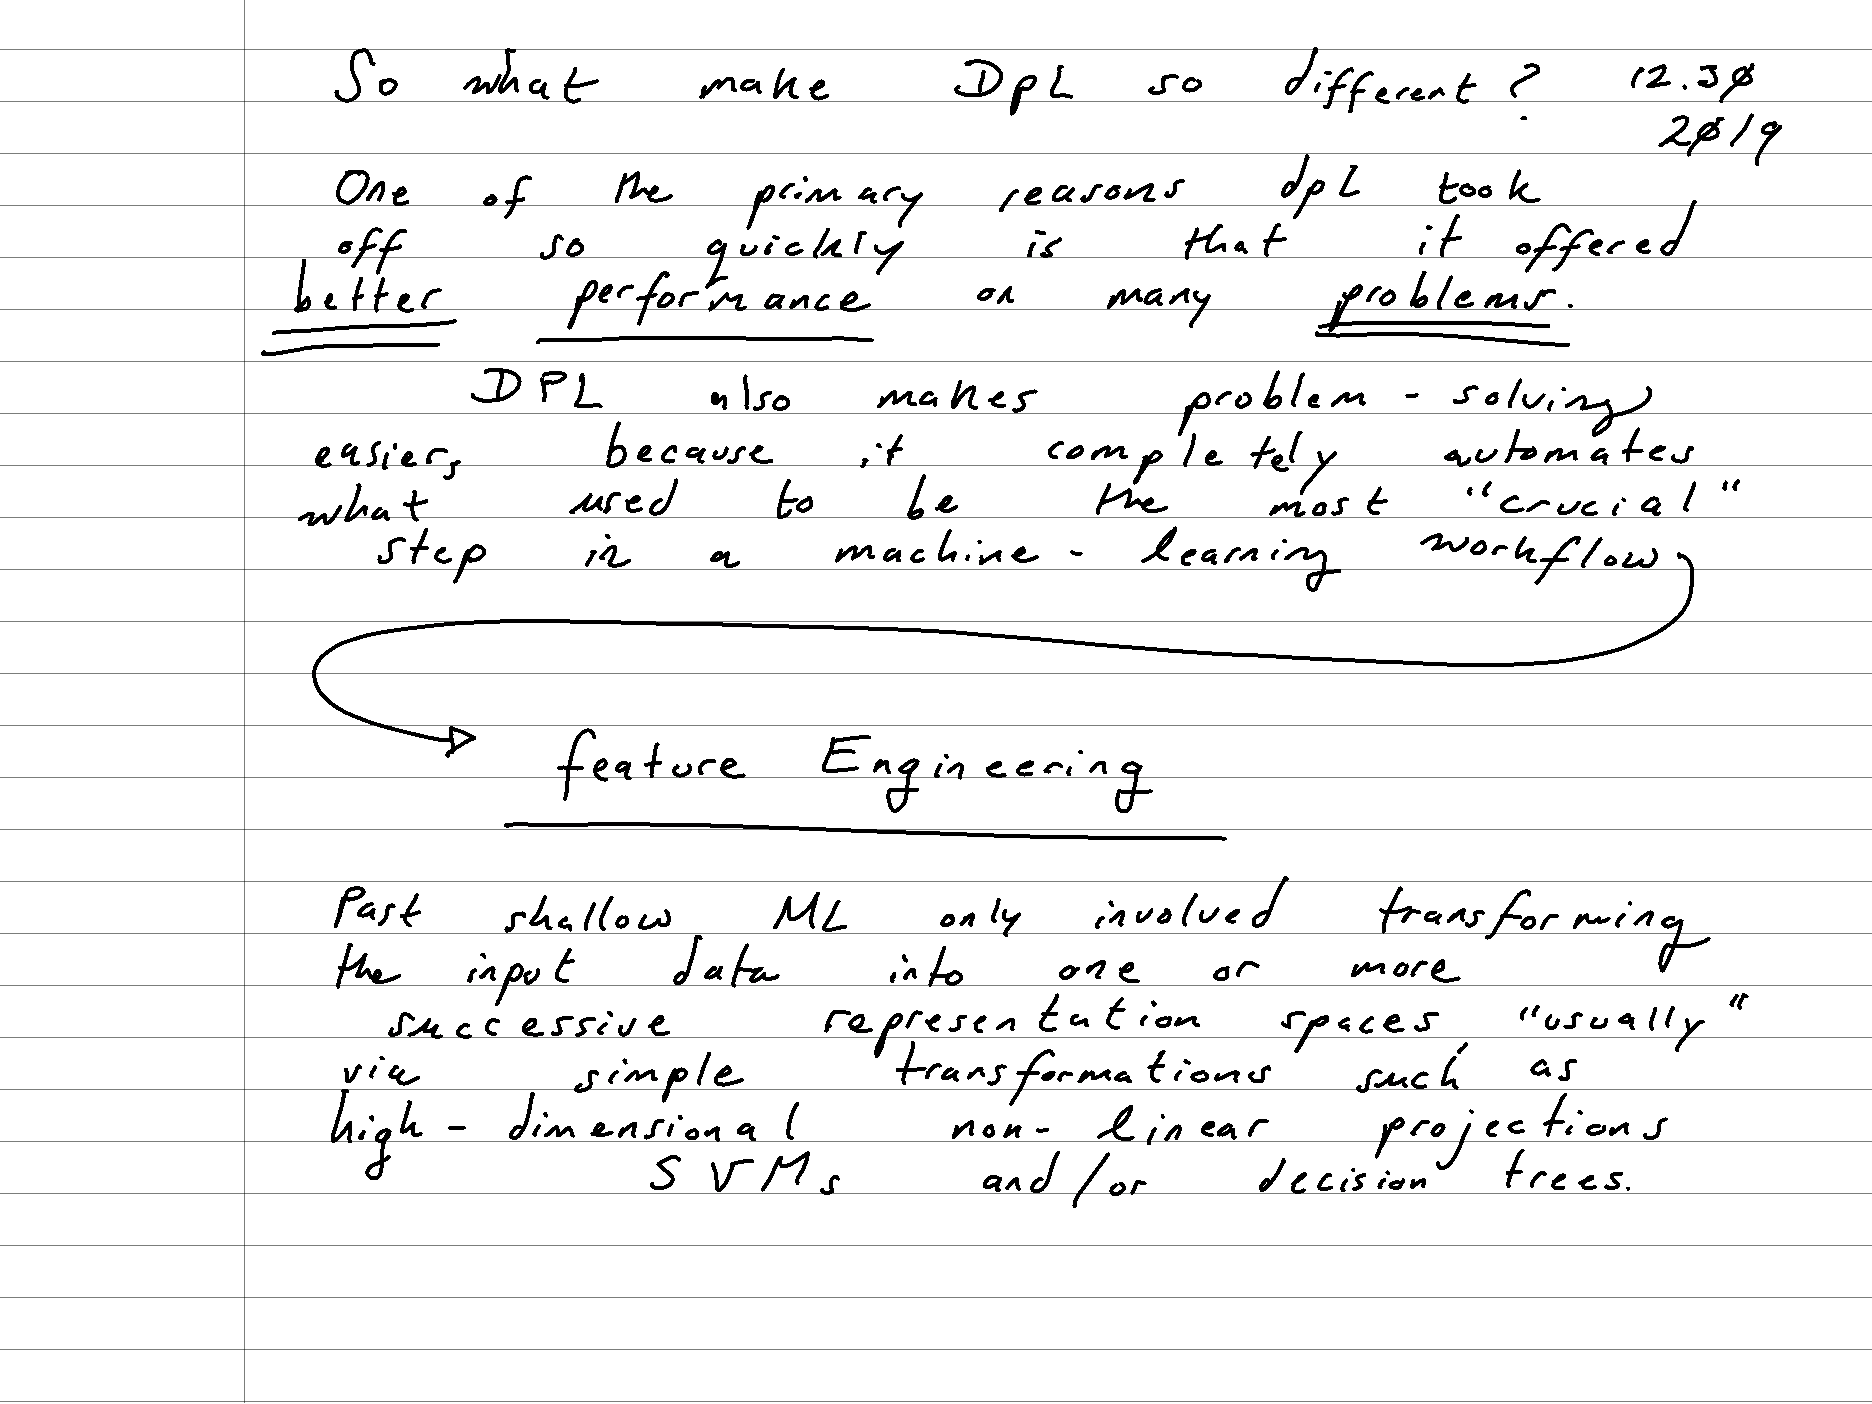 So what make DpL so different? 12.30
2019
One of the primary reasons dpL took
off so quickly is that it offered
better performance on many problems.
DPL also makes problem-solving
easier, because it completely automates
what used to be the most "crucial"
step in a machine-learning workflow
feature Engineering
Past shallow ML only involved transforming
the input data into one or more
successive representation spaces, "usually"
via simple transformations such as
high-dimensional non-linear projections
SVMs and/or decision trees.